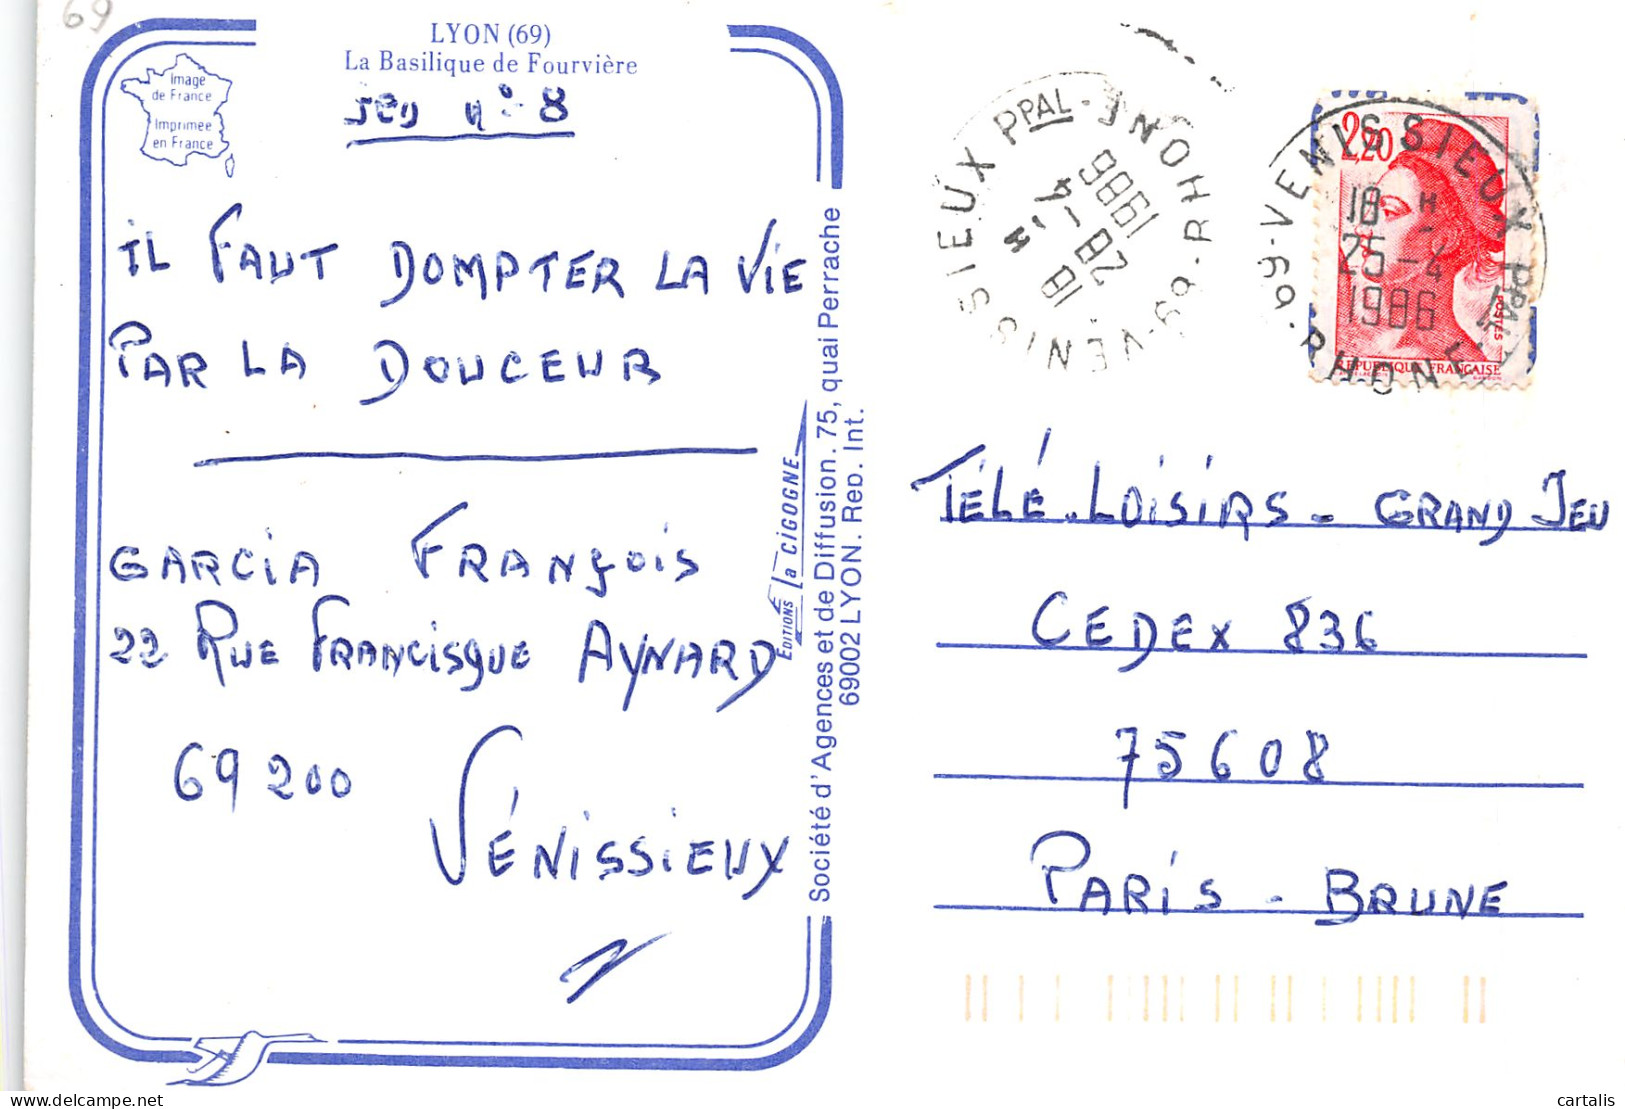 69
LYON (69)
La Basilique de Fourvière
Image
de France
Imprimée
en France
JEU N° 8
IL FAUT DOMPTER LA VIE
PAR LA DOUCEUR
GARCIA FRANÇOIS
22 RUE FRANCISQUE AYNARD
69200
VÉNISSIEUX
EDITIONS la CIGOGNE
Société d'Agences et de Diffusion. 75, quai Perrache
69002 LYON. Rep. Int.
VENISSIEUX PPAL - 69 - RHONE
18 H
28 - 4
1986
2,20
POSTES
REPUBLIQUE FRANÇAISE
69 - VENISSIEUX PPAL
RHONE
18 H
25 - 4
1986
TÉLÉ-LOISIRS - GRAND JEU
CEDEX 836
75608
PARIS - BRUNE
cartalis